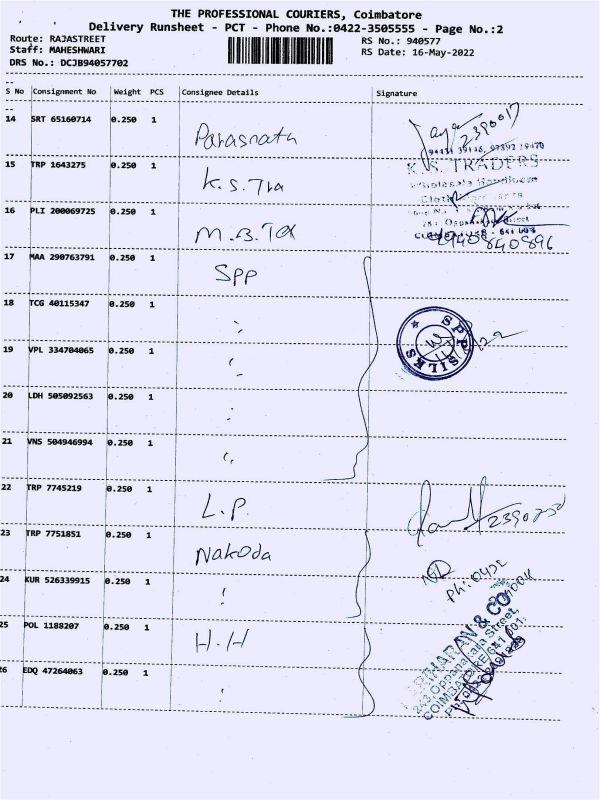 THE PROFESSIONAL COURIERS, Coimbatore
Delivery Runsheet - PCT - Phone No.:0422-3505555 - Page No.:2
Route: RAJASTREET
Staff: MAHESHWARI
DRS No.: DCJB94057702
RS No.: 940577
RS Date: 16-May-2022
S No Consignment No Weight PCS Consignee Details Signature
14 SRT 65160714 0.250 1 Parasnath
2390017
15 TRP 1643275 0.250 1 K.S.Tra
K.S. TRADERS
16 PLI 200069725 0.250 1 M.B.Tex
17 MAA 290763791 0.250 1 SPP
18 TCG 40115347 0.250 1 "
SPP SILKS
19 VPL 334704065 0.250 1 "
20 LDH 505092563 0.250 1 "
21 VNS 504946994 0.250 1 "
22 TRP 7745219 0.250 1 L.P.
23 TRP 7751851 0.250 1 Nakoda
24 KUR 526339915 0.250 1 "
25 POL 1188207 0.250 1 H.H
& CO
243, Oppanakara Street,
COIMBATORE-641 001.
26 EDQ 47264063 0.250 1 "